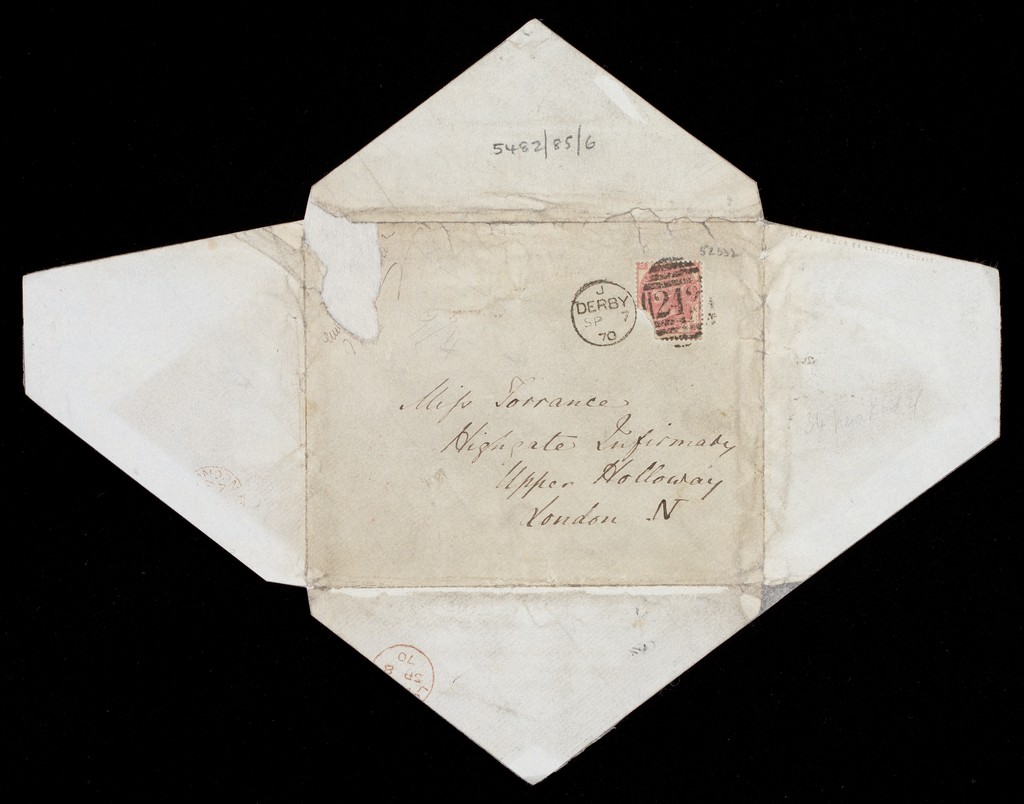 5482/85/6
52532
J
DERBY
SP 7
70
Miss Torrance
Highgate Infirmary
Upper Holloway
London N
SP 8
70